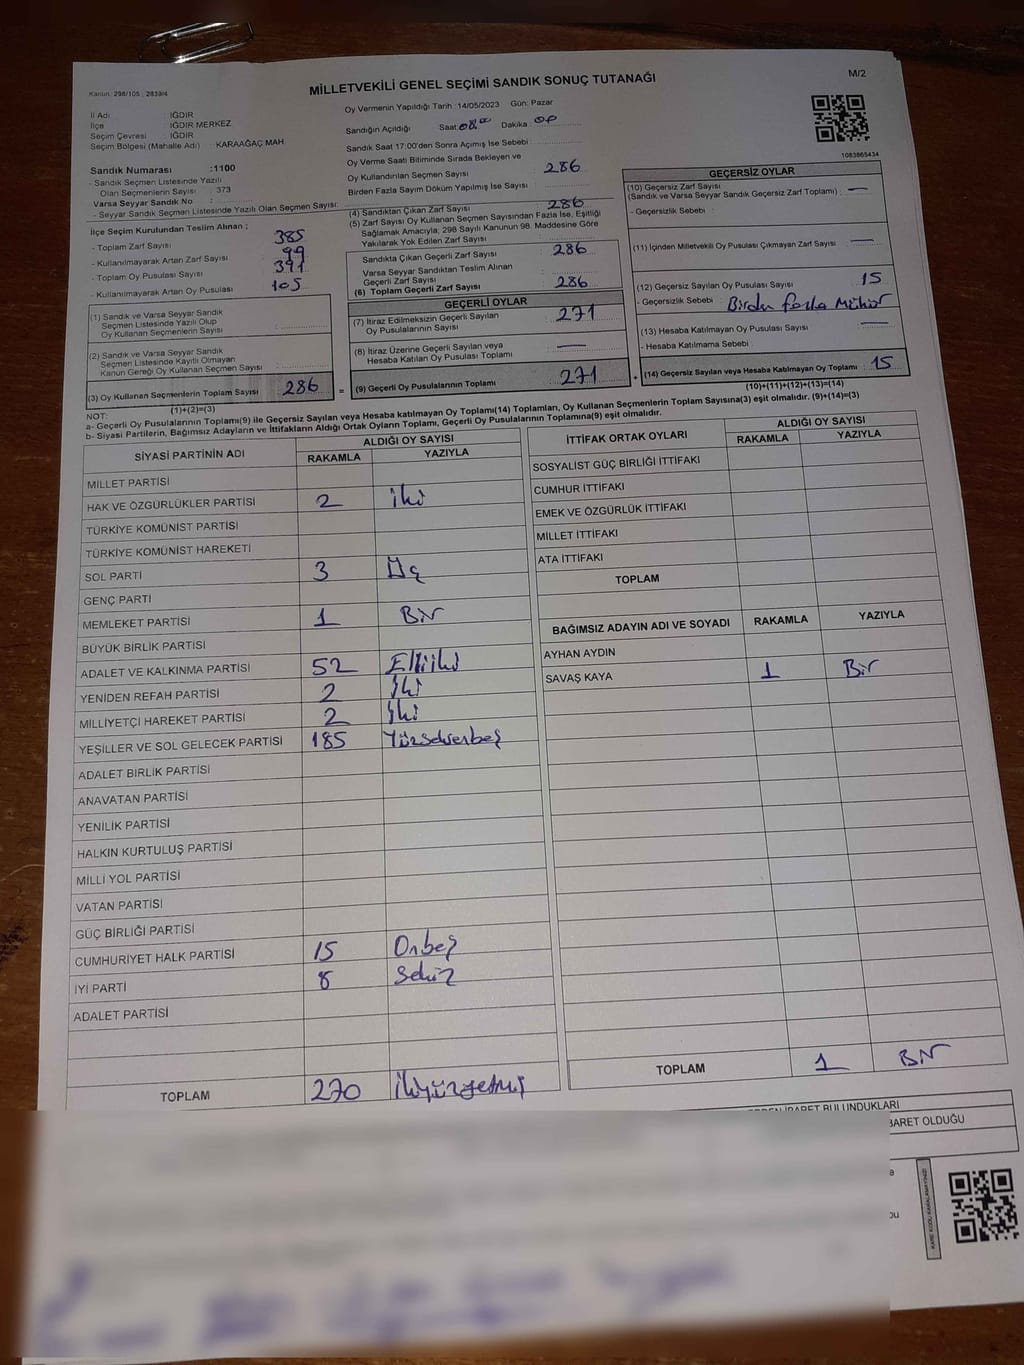 Kanun: 298/105 ; 2839/4
MİLLETVEKİLİ GENEL SEÇİMİ SANDIK SONUÇ TUTANAĞI
M/2
İl Adı IĞDIR
İlçe IĞDIR MERKEZ
Seçim Çevresi IĞDIR
Seçim Bölgesi (Mahalle Adı) KARAAĞAÇ MAH
Sandık Numarası :1100
- Sandık Seçmen Listesinde Yazılı
Olan Seçmenlerin Sayısı : 373
Varsa Seyyar Sandık No :
- Seyyar Sandık Seçmen Listesinde Yazılı Olan Seçmen Sayısı:
İlçe Seçim Kurulundan Teslim Alınan ;
- Toplam Zarf Sayısı : 385
- Kullanılmayarak Artan Zarf Sayısı : 99
- Toplam Oy Pusulası Sayısı : 391
- Kullanılmayarak Artan Oy Pusulası : 105
(1) Sandık ve Varsa Seyyar Sandık
Seçmen Listesinde Yazılı Olup
Oy Kullanan Seçmenlerin Sayısı :
(2) Sandık ve Varsa Seyyar Sandık
Seçmen Listesinde Kayıtlı Olmayan
Kanun Gereği Oy Kullanan Seçmen Sayısı :
(3) Oy Kullanan Seçmenlerin Toplam Sayısı 286 =
(1)+(2)=(3)
Oy Vermenin Yapıldığı Tarih :14/05/2023 Gün: Pazar
Sandığın Açıldığı Saat: 08.00 Dakika :
Sandık Saat 17:00'den Sonra Açımış İse Sebebi :
Oy Verme Saati Bitiminde Sırada Bekleyen ve
Oy Kullandırılan Seçmen Sayısı : 286
Birden Fazla Sayım Döküm Yapılmış İse Sayısı :
(4) Sandıktan Çıkan Zarf Sayısı : 286
(5) Zarf Sayısı Oy Kullanan Seçmen Sayısından Fazla İse, Eşitliği
Sağlamak Amacıyla, 298 Sayılı Kanunun 98. Maddesine Göre
Yakılarak Yok Edilen Zarf Sayısı :
Sandıkta Çıkan Geçerli Zarf Sayısı : 286
Varsa Seyyar Sandıktan Teslim Alınan
Geçerli Zarf Sayısı :
(6) Toplam Geçerli Zarf Sayısı : 286
GEÇERLİ OYLAR
(7) İtiraz Edilmeksizin Geçerli Sayılan
Oy Pusulalarının Sayısı : 271
(8) İtiraz Üzerine Geçerli Sayılan veya
Hesaba Katılan Oy Pusulası Toplamı : —
(9) Geçerli Oy Pusulalarının Toplamı : 271 +
1083865434
GEÇERSİZ OYLAR
(10) Geçersiz Zarf Sayısı
(Sandık ve Varsa Seyyar Sandık Geçersiz Zarf Toplamı) : —
- Geçersizlik Sebebi :
(11) İçinden Milletvekili Oy Pusulası Çıkmayan Zarf Sayısı : —
(12) Geçersiz Sayılan Oy Pusulası Sayısı : 15
- Geçersizlik Sebebi : Birden fazla Mühür
(13) Hesaba Katılmayan Oy Pusulası Sayısı : —
- Hesaba Katılmama Sebebi :
(14) Geçersiz Sayılan veya Hesaba Katılmayan Oy Toplamı : 15
(10)+(11)+(12)+(13)=(14)
NOT:
a- Geçerli Oy Pusulalarının Toplamı(9) ile Geçersiz Sayılan veya Hesaba katılmayan Oy Toplamı(14) Toplamları, Oy Kullanan Seçmenlerin Toplam Sayısına(3) eşit olmalıdır. (9)+(14)=(3)
b- Siyasi Partilerin, Bağımsız Adayların ve İttifakların Aldığı Ortak Oyların Toplamı, Geçerli Oy Pusulalarının Toplamına(9) eşit olmalıdır.
SİYASİ PARTİNİN ADI ALDIĞI OY SAYISI
RAKAMLA YAZIYLA
MİLLET PARTİSİ
HAK VE ÖZGÜRLÜKLER PARTİSİ 2 iki
TÜRKİYE KOMÜNİST PARTİSİ
TÜRKİYE KOMÜNİST HAREKETİ
SOL PARTİ 3 Üç
GENÇ PARTİ
MEMLEKET PARTİSİ 1 Bir
BÜYÜK BİRLİK PARTİSİ
ADALET VE KALKINMA PARTİSİ 52 Elliiki
YENİDEN REFAH PARTİSİ 2 İki
MİLLİYETÇİ HAREKET PARTİSİ 2 İki
YEŞİLLER VE SOL GELECEK PARTİSİ 185 Yüzseksenbeş
ADALET BİRLİK PARTİSİ
ANAVATAN PARTİSİ
YENİLİK PARTİSİ
HALKIN KURTULUŞ PARTİSİ
MİLLİ YOL PARTİSİ
VATAN PARTİSİ
GÜÇ BİRLİĞİ PARTİSİ
CUMHURİYET HALK PARTİSİ 15 Onbeş
İYİ PARTİ 8 Sekiz
ADALET PARTİSİ
TOPLAM 270 İkiyüzyetmiş
İTTİFAK ORTAK OYLARI ALDIĞI OY SAYISI
RAKAMLA YAZIYLA
SOSYALİST GÜÇ BİRLİĞİ İTTİFAKI
CUMHUR İTTİFAKI
EMEK VE ÖZGÜRLÜK İTTİFAKI
MİLLET İTTİFAKI
ATA İTTİFAKI
TOPLAM
BAĞIMSIZ ADAYIN ADI VE SOYADI RAKAMLA YAZIYLA
AYHAN AYDIN
SAVAŞ KAYA 1 Bir
TOPLAM 1 Bir
İBARET BULUNDUKLARI
BARET OLDUĞU